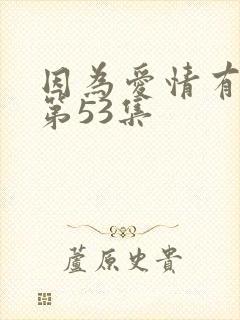 因為愛情有
第53集
蘆原史貴